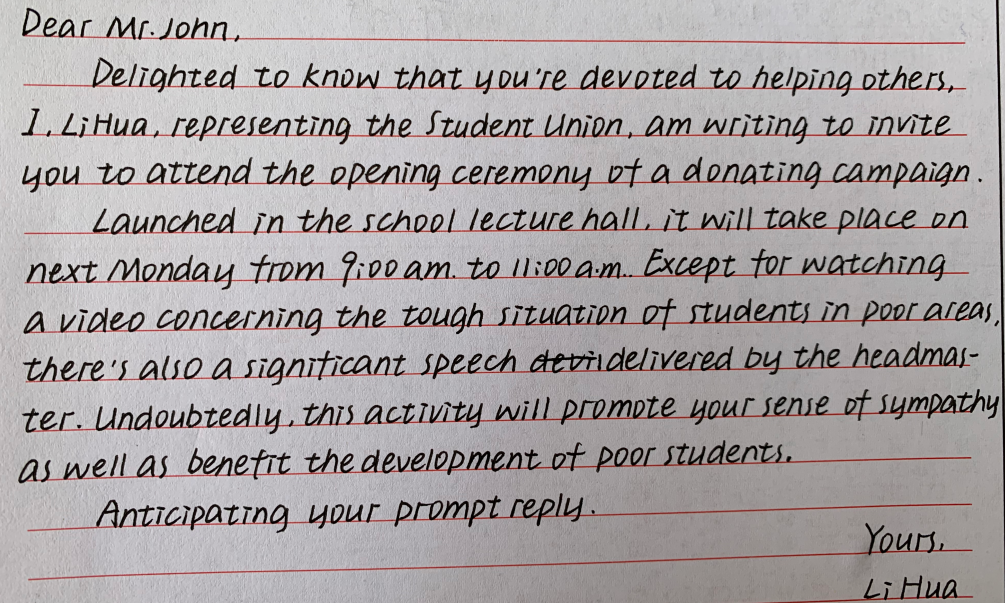 Dear Mr. John,
Delighted to know that you're devoted to helping others,
I, Li Hua, representing the Student Union, am writing to invite
you to attend the opening ceremony of a donating campaign.
Launched in the school lecture hall, it will take place on
next Monday from 9:00 am. to 11:00 a.m.. Except for watching
a video concerning the tough situation of students in poor areas,
there's also a significant speech delivered by the headmas-
ter. Undoubtedly, this activity will promote your sense of sympathy
as well as benefit the development of poor students.
Anticipating your prompt reply.
Yours,
Li Hua